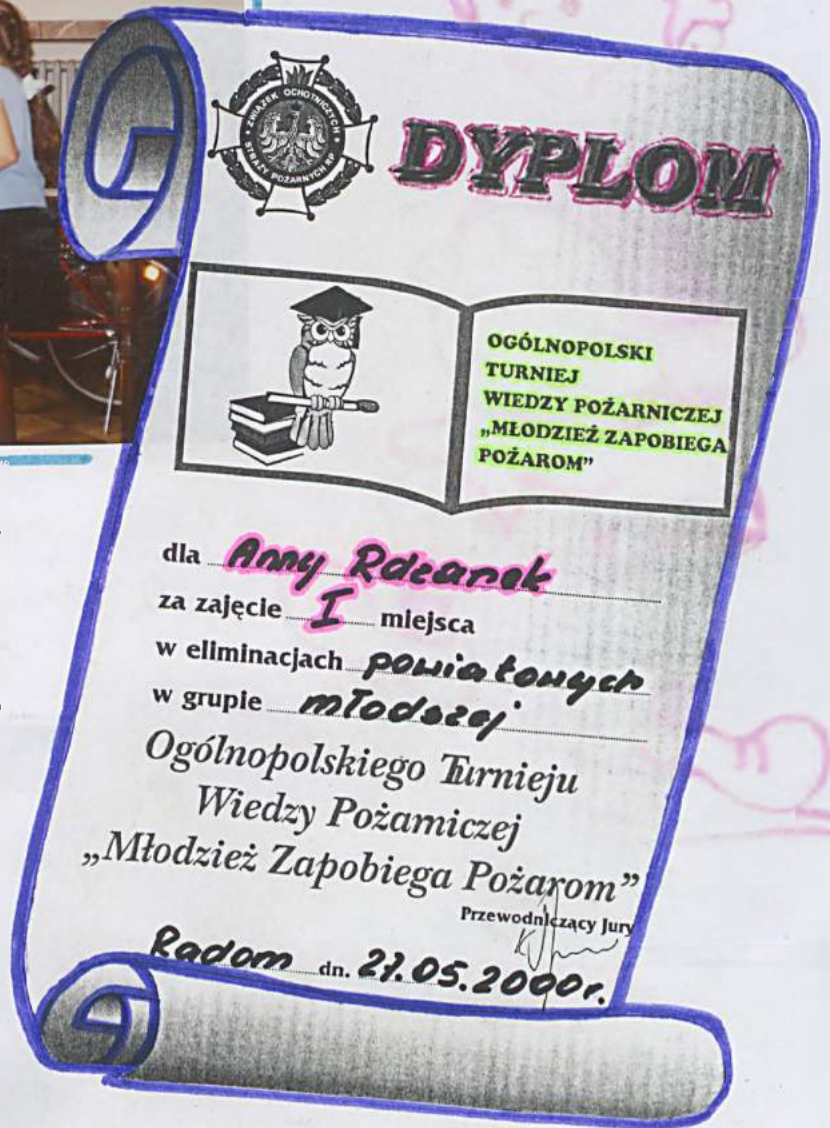 ZWIĄZEK OCHOTNICZYCH
STRAŻY POŻARNYCH RP
DYPLOM
OGÓLNOPOLSKI
TURNIEJ
WIEDZY POŻARNICZEJ
„MŁODZIEŻ ZAPOBIEGA
POŻAROM”
dla Anny Rdzanek
za zajęcie I miejsca
w eliminacjach powiatowych
w grupie młodszej
Ogólnopolskiego Turnieju
Wiedzy Pożarniczej
„Młodzież Zapobiega Pożarom”
Przewodniczący Jury
Radom dn. 27.05.2000r.